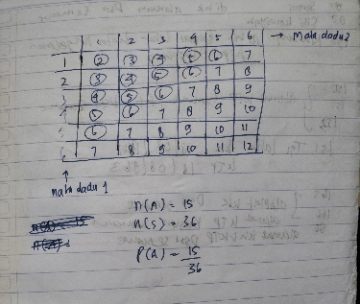 1 2 3 4 5 6 → Mata dadu 2
1 2 3 4 5 6 7
2 3 4 5 6 7 8
3 4 5 6 7 8 9
4 5 6 7 8 9 10
5 6 7 8 9 10 11
6 7 8 9 10 11 12
↑
mata dadu 1
n(A) = 15
n(S) = 36
P(A) = 15
36